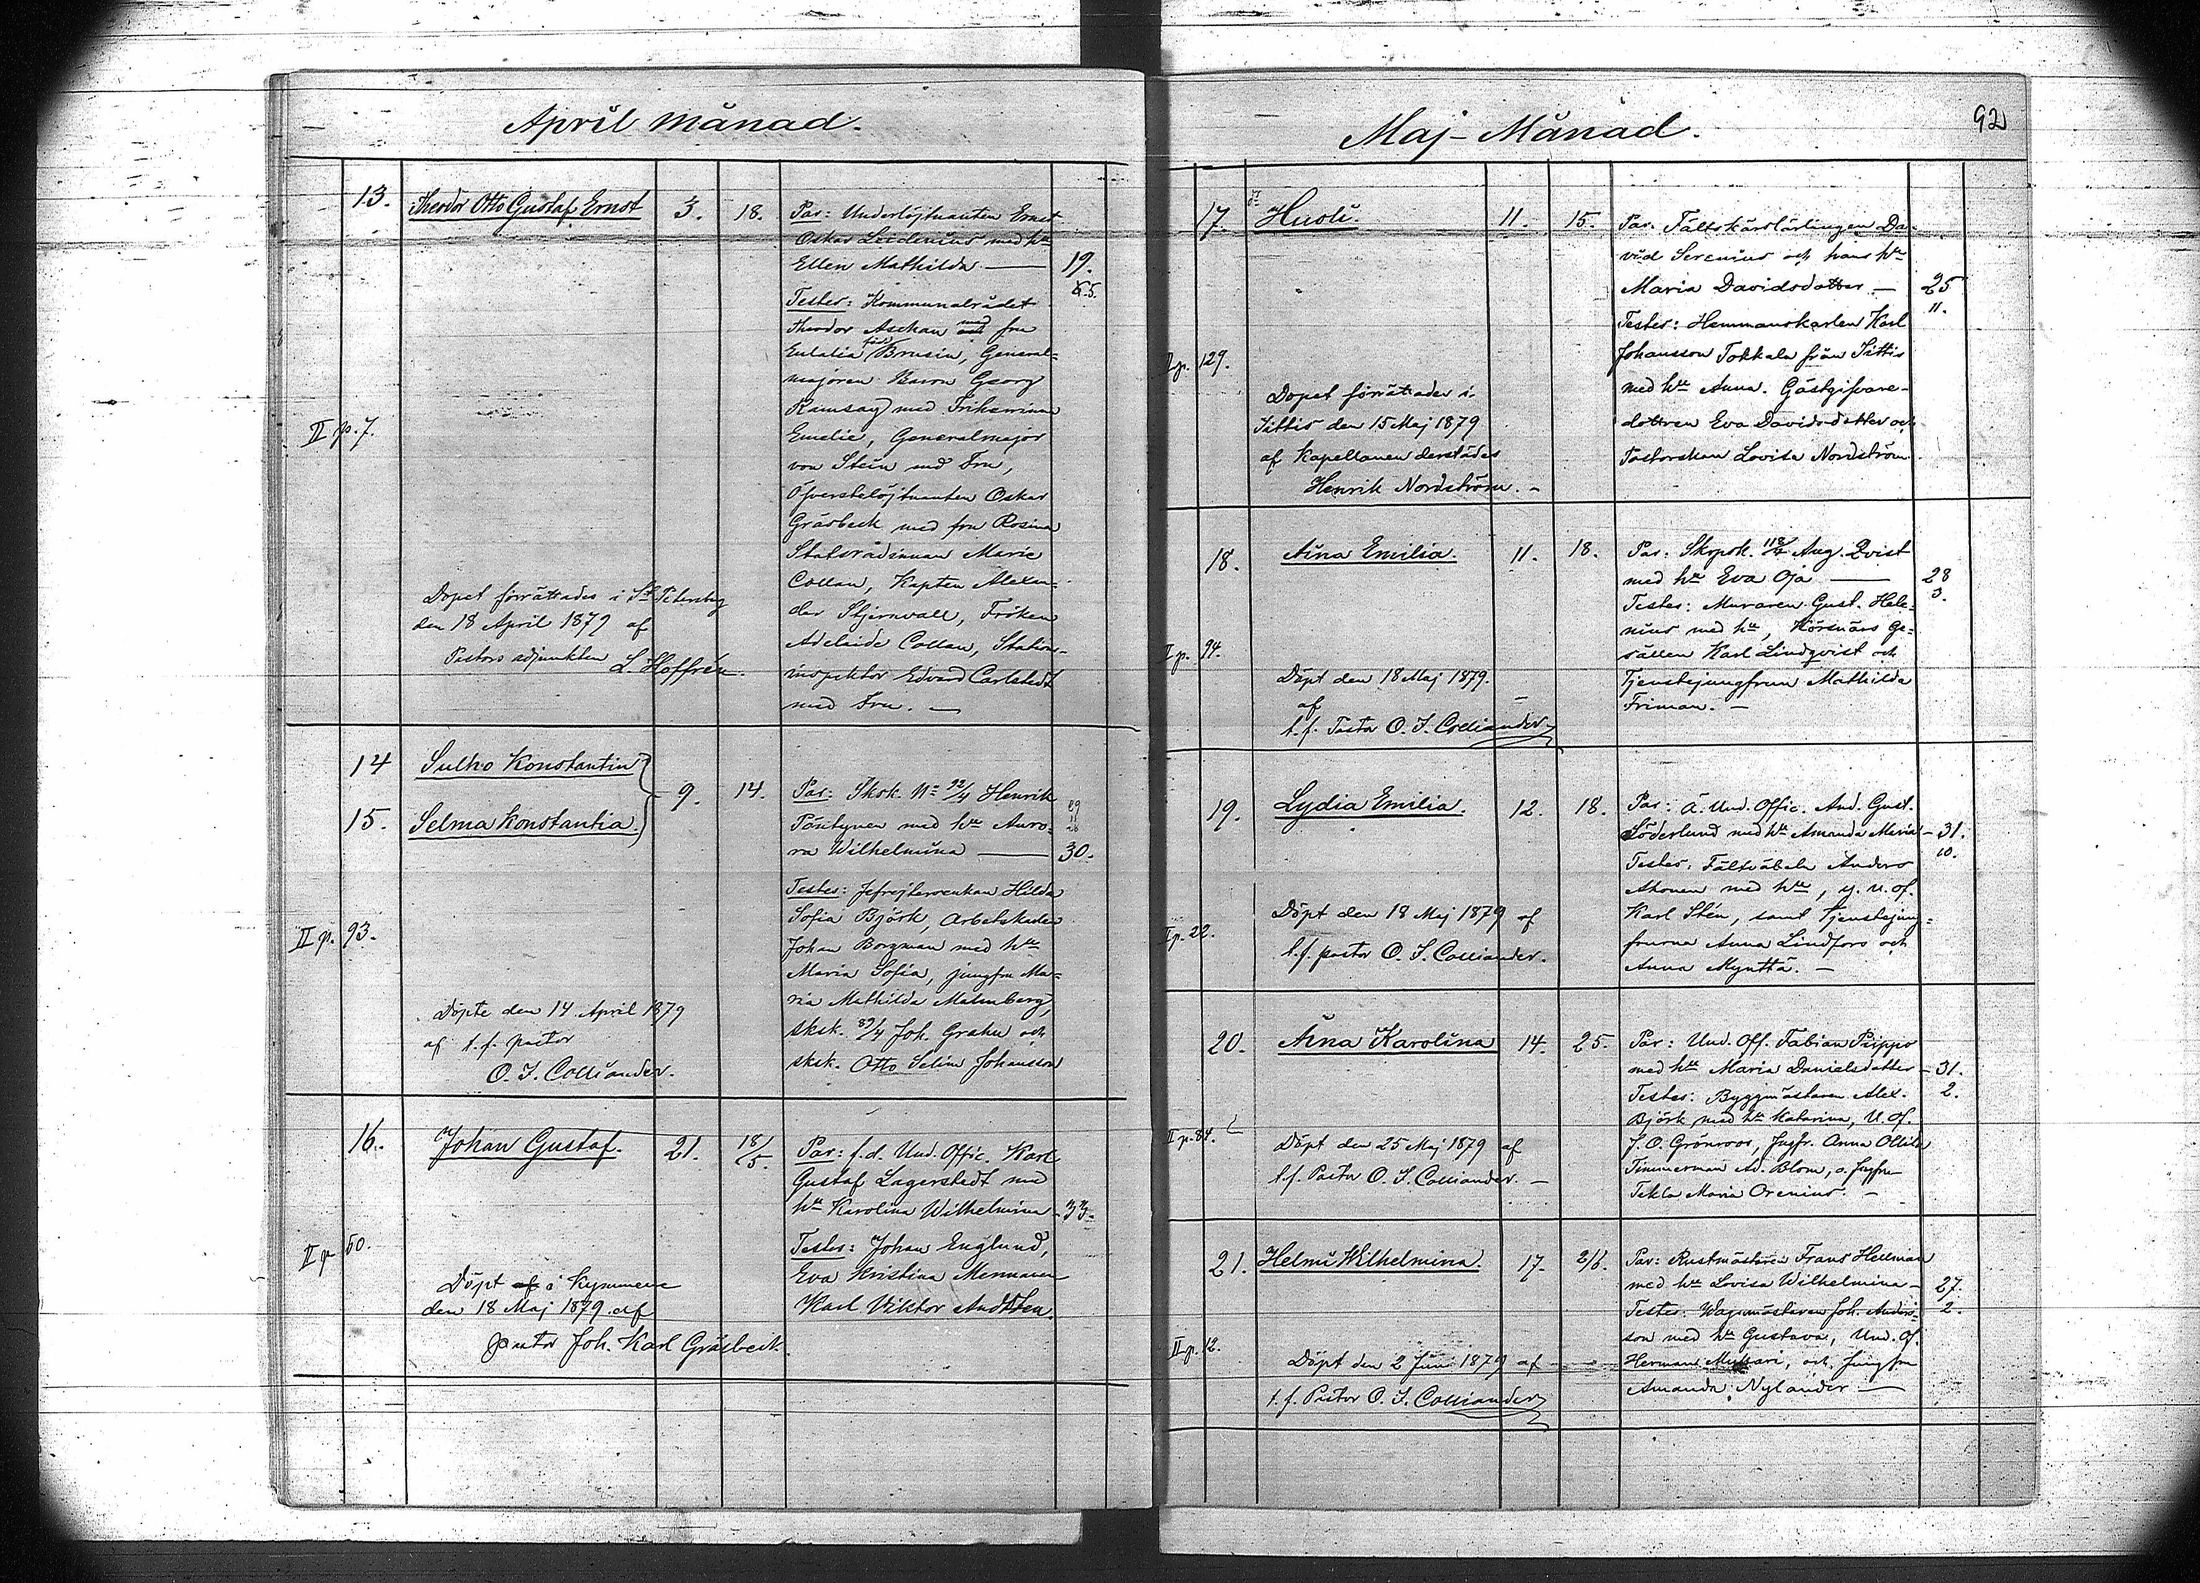 April månad.
13. Theodor Otto Gustaf Ernst 3. 18. Par: Underlöjtnanten Ernst
Oskar med hu
Ellen Mathilda — 19.
Testes: Kommunalrådet 5.
Theodor Aschan med fru
Eulalia född Brusin, General-
majoren Baron Georg
Ramsay med Friherrinnan
Emelie, Generalmajor
von Stein med Fru,
II p. 7.
Öfverstelöjtnanten Oskar
Gräsbeck med fru Rosina
Statsrådinnan Marie
Collan, Kapten Alexan-
der Stjernvall, Fröken
Adelaide Collan, Stations-
inspektor Edvard Carlstedt
med Fru. —
Dopet förrättades i St Petersburg
den 18 April 1879 af
Pastors adjunkten L. Hoffrén.
14 Sulho Konstantin
15. Selma Konstantia. 9. 14. Par: Sksk. No 92/4 Henrik
Pöntynen med hu Auro-
ra Wilhelmina — 30.
Testes: Hilda
Sofia Björk, Arbetskarlen
Johan Borgman med hu
Maria Sofia, jungfru Ma-
ria Mathilda Malmberg,
sksk. 89/4 Joh. Grahn och
sksk. Otto Selim Johansson
II p. 93.
Döpte den 14 April 1879
af t.f. pastor
O. I. Colliander.
16. Johan Gustaf. 21. 18/5. Par: f.d. Und. Offic. Karl
Gustaf Lagerstedt med
hu Karolina Wilhelmina 33.
Testes: Johan Englund,
Eva Kristina Mennanen
Karl Viktor
II p. 50.
Döpt af i Kymmene
den 18 Maj 1879 af
pastor Joh. Karl Gräsbeck.
Maj-Månad. 92
17. Huoli. 11. 15. Par: Fältskärslärlingen Da-
vid Serenius och hans hu
Maria Davidsdotter — 25
Testes: Hemmanskarlen Karl 11.
Johansson Tokkala från Sittis
med hu Anna. Gästgifvare-
dottren Eva Davidsdotter och
Pastorskan Lovisa Nordström.
II p. 129.
Dopet förrättades i
Sittis den 15 Maj 1879
af Kapellanen derstädes
Henrik Nordström. —
18. Aina Emilia. 11. 18. Par: 118/4 Aug. Qvist
med hu Eva Oja — 28
Testes: Muraren Gust. Hele- 3.
nius med hu, Körsnärs Ge-
sällen Karl Lindqvist och
Tjenstejungfrun Mathilda
Friman. —
II p. 94.
Döpt den 18 Maj 1879.
af
t.f. Pastor O. I. Colliander
19. Lydia Emilia. 12. 18. Par: Ä. Und. Offic. And. Gust.
Söderlund med hu Amanda Maria — 31.
Testes: Fältväbeln Anders 10.
Ahonen med hu, y. u. of.
Karl Stén, samt Tjenstejung-
frurna Anna Lindfors och
Anna Mynttä. —
II p. 22.
Döpt den 18 Maj 1879 af
t.f. pastor O. I. Colliander.
20. Aina Karolina 14. 25. Par: Und. Off. Fabian Piippo
med hu Maria Danielsdotter — 31.
Testes: Byggmästaren Alex. 2.
Björk med hu Katarina, U. of.
J. O. Grönroos, Jngfr. Anna Ollila
Timmerman Ad. Blom, o. Jngfru
Tekla Maria Orenius. —
II p. 84.
Döpt den 25 Maj 1879 af
t.f. Pastor O. I. Colliander. —
21. Helmi Wilhelmina. 17. 2/6. Par: Rustmästaren Frans Hellman
med hu Lovisa Wilhelmina — 27.
Testes: Wagnmästaren Joh. Anders- 2.
son med hu Gustava, Und. of.
Herman och Jungfru
Amanda Nylander —
II p. 12.
Döpt den 2 Juni 1879 af
t.f. Pastor O. I. Colliander